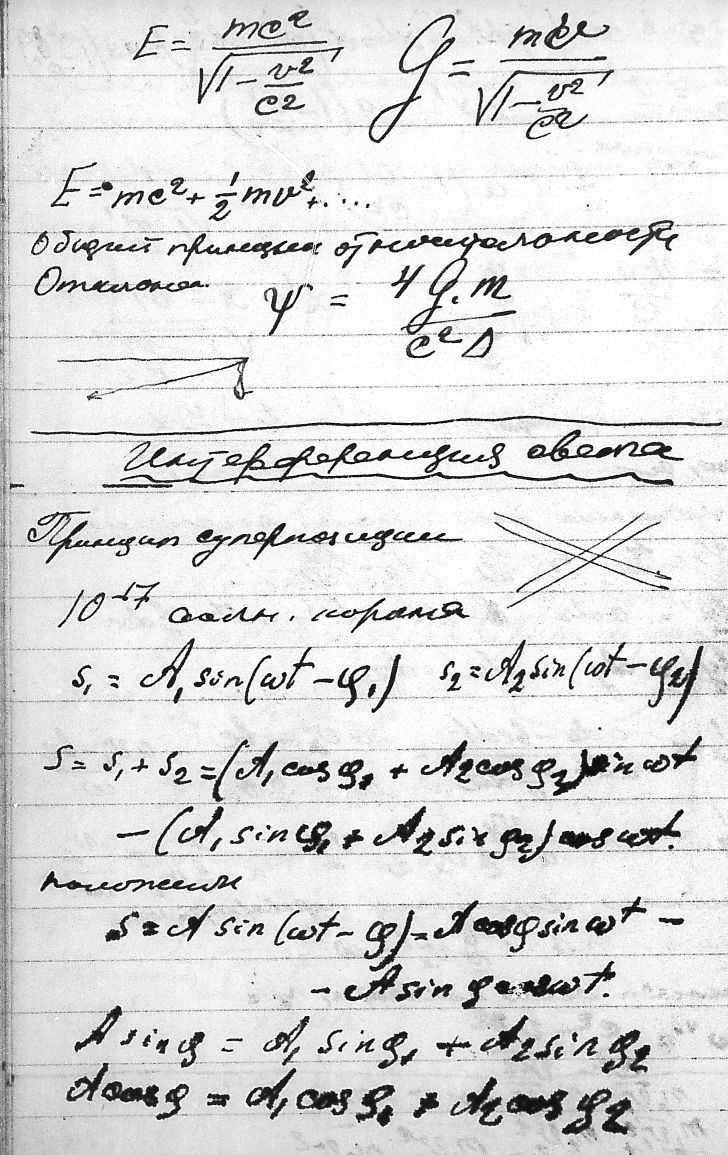 E = mc² / √(1 − v²/c²)   G = mc² / √(1 − v²/c²)
E = mc² + ½ mv² + ....
Общий принцип относительности
Отклонен. ψ = 4 G. m / c² Δ
Интерференция света
Принцип суперпозиции
10⁻¹⁷ солн.
s₁ = A₁ sin(ωt − φ₁)   s₂ = A₂ sin(ωt − φ₂)
s = s₁ + s₂ = (A₁ cos φ₁ + A₂ cos φ₂) sin ωt
− (A₁ sin φ₁ + A₂ sin φ₂) cos ωt.
положим
s = A sin (ωt − φ) = A cos φ sin ωt −
− A sin φ cos ωt.
A sin φ = A₁ sin φ₁ + A₂ sin φ₂
A cos φ = A₁ cos φ₁ + A₂ cos φ₂